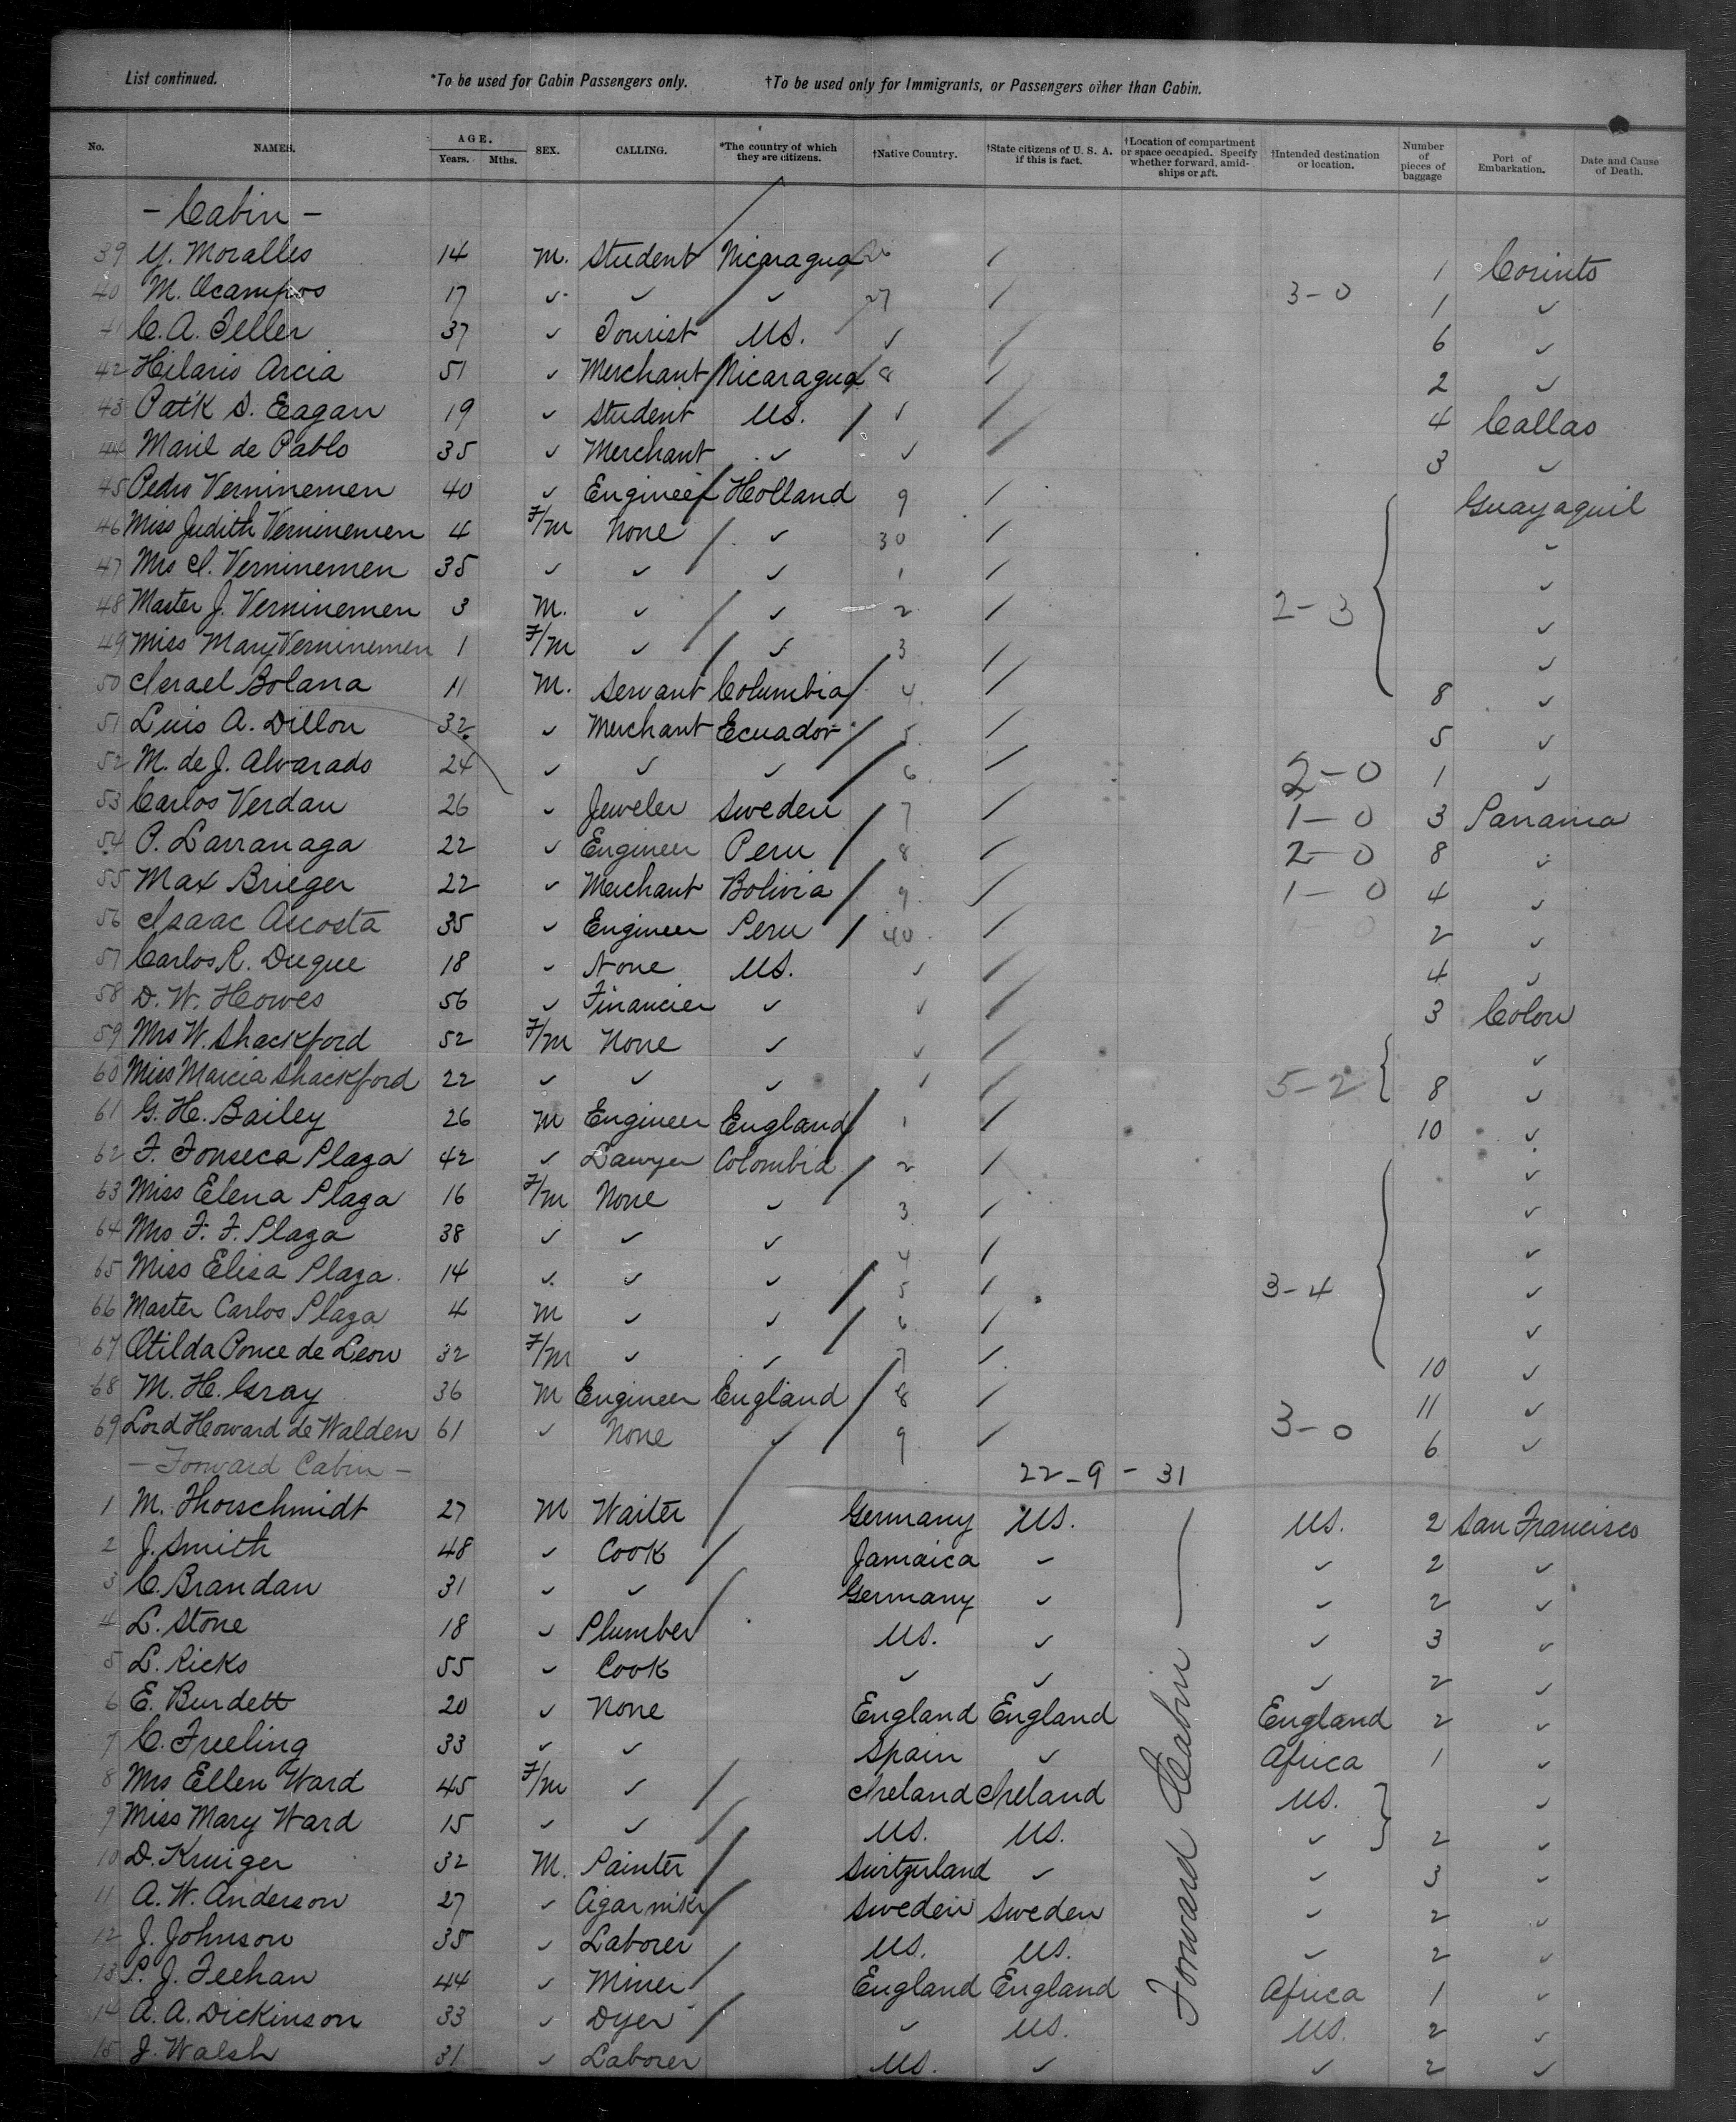 List continued. *To be used for Cabin Passengers only. †To be used only for Immigrants, or Passengers other than Cabin.
No. NAMES. AGE. Years. Mths. SEX. CALLING. *The country of which they are citizens. †Native Country. †State citizens of U. S. A. if this is fact. †Location of compartment or space occupied. Specify whether forward, amidships or aft. †Intended destination or location. Number of pieces of baggage Port of Embarkation. Date and Cause of Death.
- Cabin -
39 Y. Moralles 14 M. Student Nicaragua / 1 Corinto
40 M. Ocampos 17 ✓ ✓ ✓ 27 / 3-0 1 ✓
41 C. A. Teller 37 ✓ Tourist US. ✓ / 6 ✓
42 Hilario Arcia 51 ✓ Merchant Nicaragua 8 / 2 ✓
43 Patk S. Eagan 19 ✓ Student US. ✓ / 4 Callao
44 Manl de Pablo 35 ✓ Merchant ✓ ✓ / 3 ✓
45 Pedro Verninemen 40 ✓ Engineer Holland 9 / Guayaquil
46 Miss Judith Verninemen 4 F/m None ✓ 30 / ✓
47 Mrs I. Verninemen 35 ✓ ✓ ✓ 1 / ✓
48 Master J. Verninemen 3 M. ✓ ✓ 2 / 2-3 ✓
49 Miss Mary Verninemen 1 F/m ✓ ✓ 3 / ✓
50 Israel Bolana 11 M. Servant Columbia 4 / 8 ✓
51 Luis A. Dillon 32 ✓ Merchant Ecuador 5 / 5 ✓
52 M. de J. Alvarado 24 ✓ ✓ ✓ 6 / 2-0 1 ✓
53 Carlos Verdan 26 ✓ Jeweler Sweden 7 / 1-0 3 Panama
54 P. Larranaga 22 ✓ Engineer Peru 8 / 2-0 8 ✓
55 Max Brieger 22 ✓ Merchant Bolivia 9 / 1-0 4 ✓
56 Isaac Acosta 35 ✓ Engineer Peru 40 / 2 ✓
57 Carlos R. Duque 18 ✓ None US. ✓ / 4 ✓
58 D. W. Howes 56 ✓ Financier ✓ ✓ / 3 Colon
59 Mrs W. Shackford 52 F/m None ✓ ✓ / ✓
60 Miss Marcia Shackford 22 ✓ ✓ ✓ ✓ / 5-2 8 ✓
61 G. H. Bailey 26 M Engineer England 1 / 10 ✓
62 F. Fonseca Plaza 42 ✓ Lawyer Colombia 2 / ✓
63 Miss Elena Plaza 16 F/m None ✓ 3 / ✓
64 Mrs F. F. Plaza 38 ✓ ✓ ✓ 4 / ✓
65 Miss Elisa Plaza 14 ✓ ✓ ✓ 5 / 3-4 ✓
66 Master Carlos Plaza 4 M ✓ ✓ 6 / ✓
67 Otilda Ponce de Leon 32 F/m ✓ ✓ 7 / 10 ✓
68 M. H. Gray 36 M Engineer England 8 / 11 ✓
69 Lord Howard de Walden 61 ✓ None ✓ 9 / 3-0 6 ✓
- Forward Cabin - 22-9-31
1 M. Thorschmidt 27 M Waiter Germany US. US. 2 San Francisco
2 J. Smith 48 ✓ Cook Jamaica ✓ ✓ 2 ✓
3 C. Brandan 31 ✓ ✓ Germany ✓ ✓ 2 ✓
4 L. Stone 18 ✓ Plumber US. ✓ ✓ 3 ✓
5 L. Ricks 55 ✓ Cook ✓ ✓ ✓ 2 ✓
6 E. Burdett 20 ✓ None England England England 2 ✓
7 C. Freeling 33 ✓ ✓ Spain ✓ Africa 1 ✓
8 Mrs Ellen Ward 45 F/m ✓ Ireland Ireland US. ✓
9 Miss Mary Ward 15 ✓ ✓ US. US. ✓ 2 ✓
10 D. Kruiger 32 M. Painter Switzerland ✓ ✓ 3 ✓
11 A. W. Anderson 27 ✓ Cigar mkr Sweden Sweden ✓ 2 ✓
12 J. Johnson 35 ✓ Laborer US. US. ✓ 2 ✓
13 P. J. Feehan 44 ✓ Miner England England Africa 1 ✓
14 A. A. Dickinson 33 ✓ Dyer ✓ US. US. 2 ✓
15 J. Walsh 31 ✓ Laborer US. ✓ ✓ 2 ✓
Forward Cabin